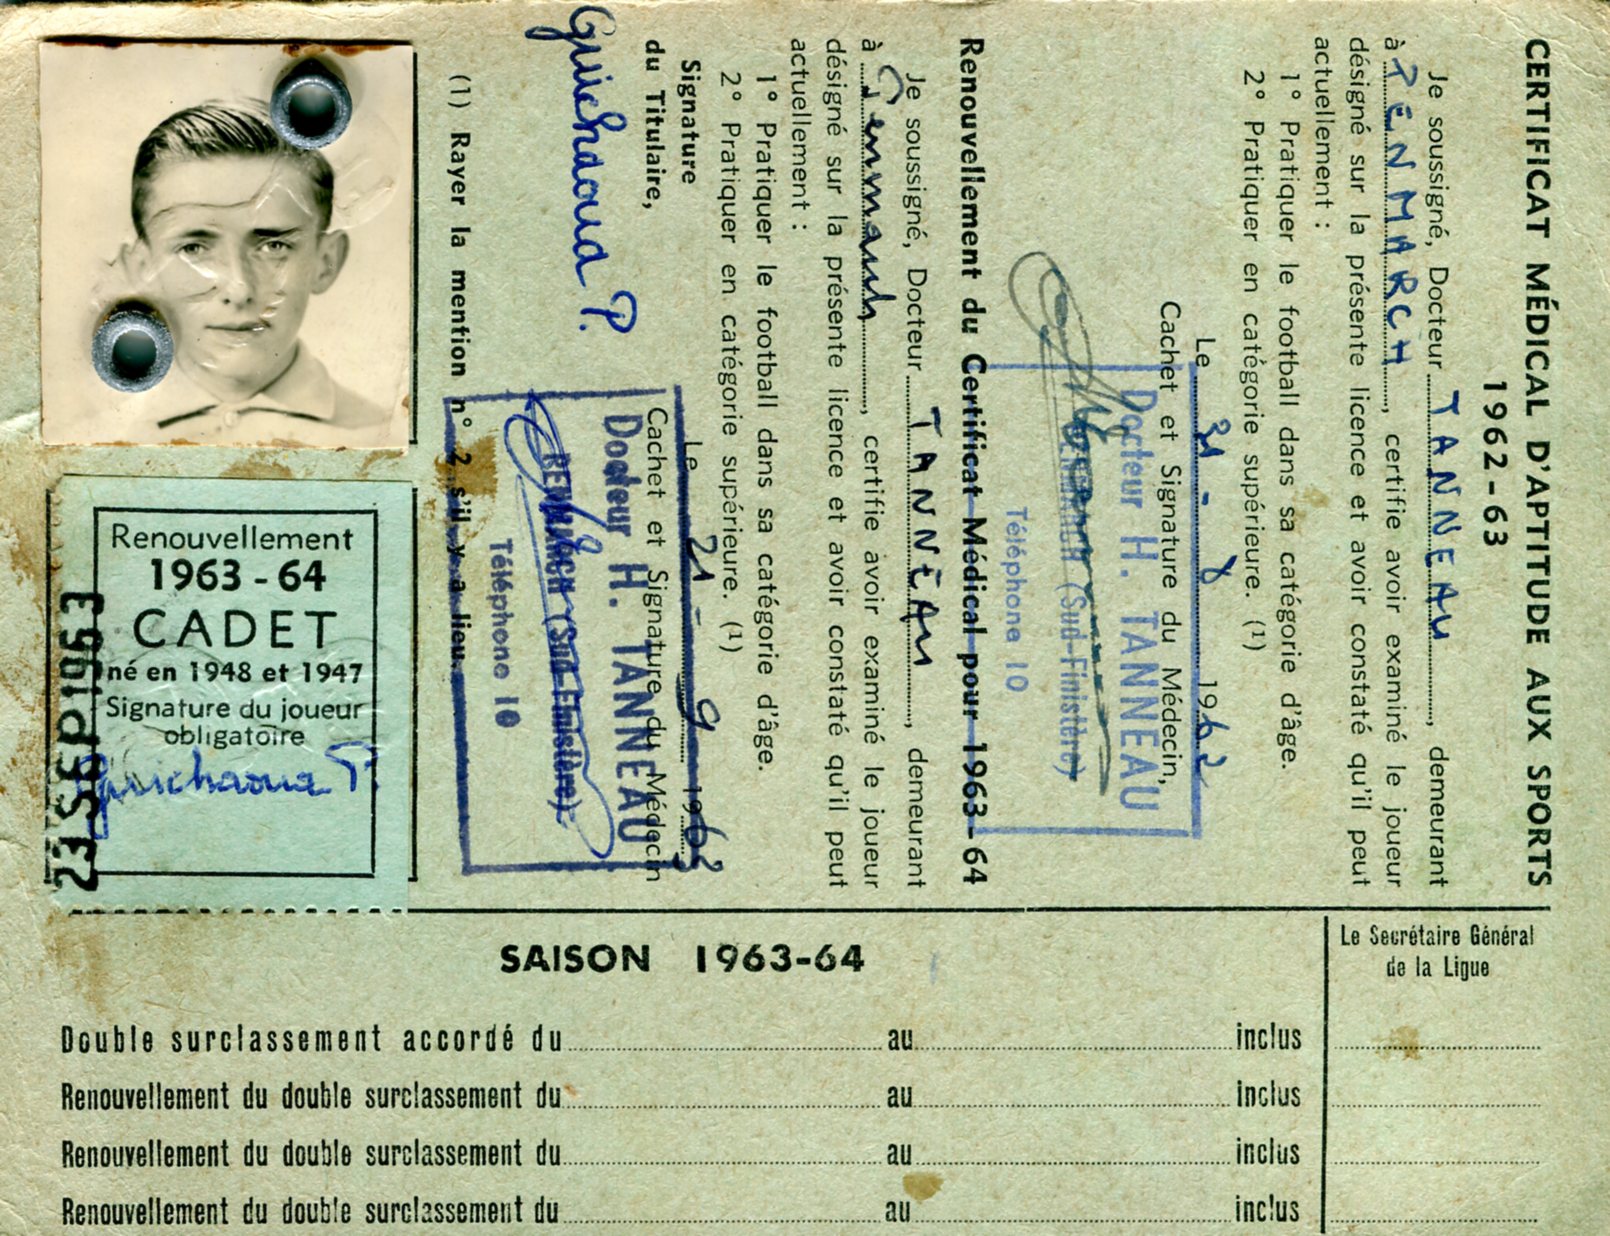 CERTIFICAT MÉDICAL D'APTITUDE AUX SPORTS
1962-63
Je soussigné, Docteur TANNEAU, demeurant
à PENMARCH, certifie avoir examiné le joueur
désigné sur la présente licence et avoir constaté qu'il peut
actuellement :
1° Pratiquer le football dans sa catégorie d'âge.
2° Pratiquer en catégorie supérieure. (1)
Le 31-8 1962
Cachet et Signature du Médecin,
Docteur H. TANNEAU
PENMARCH (Sud-Finistère)
Téléphone 10
Renouvellement du Certificat Médical pour 1963-64
Je soussigné, Docteur TANNEAU, demeurant
à Penmarch, certifie avoir examiné le joueur
désigné sur la présente licence et avoir constaté qu'il peut
actuellement :
1° Pratiquer le football dans sa catégorie d'âge.
2° Pratiquer en catégorie supérieure. (1)
Le 21-9 1963
Cachet et Signature du Médecin
Docteur H. TANNEAU
PENMARCH (Sud-Finistère)
Téléphone 10
Signature
du Titulaire,
Guichaoua P.
(1) Rayer la mention n° 2 s'il y a lieu.
Renouvellement
1963-64
CADET
né en 1948 et 1947
Signature du joueur
obligatoire
Guichaoua P.
23 SEP 1963
SAISON 1963-64
Le Secrétaire Général
de la Ligue
Double surclassement accordé du au inclus
Renouvellement du double surclassement du au inclus
Renouvellement du double surclassement du au inclus
Renouvellement du double surclassement du au inclus